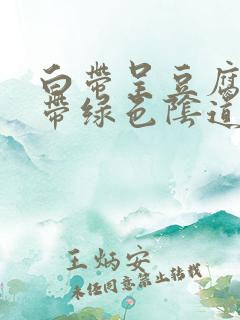 白带呈豆腐
带绿色阴道
王炳安
未经同意禁止转载